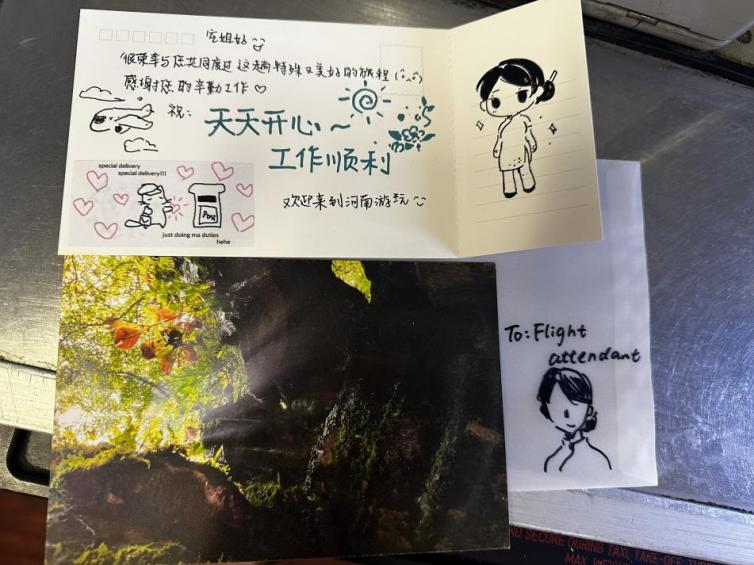 空姐好
很荣幸与您共同度过这趟特殊又美好的旅程
感谢您的辛勤工作♡
祝：
天天开心～
工作顺利
欢迎来到河南游玩
special delivery
special delivery!!!
Post
just doing ma duties
hehe
To: Flight
attendant
ND SECURE DURING TAXI, TAKE-OFF, TUR
MAX.